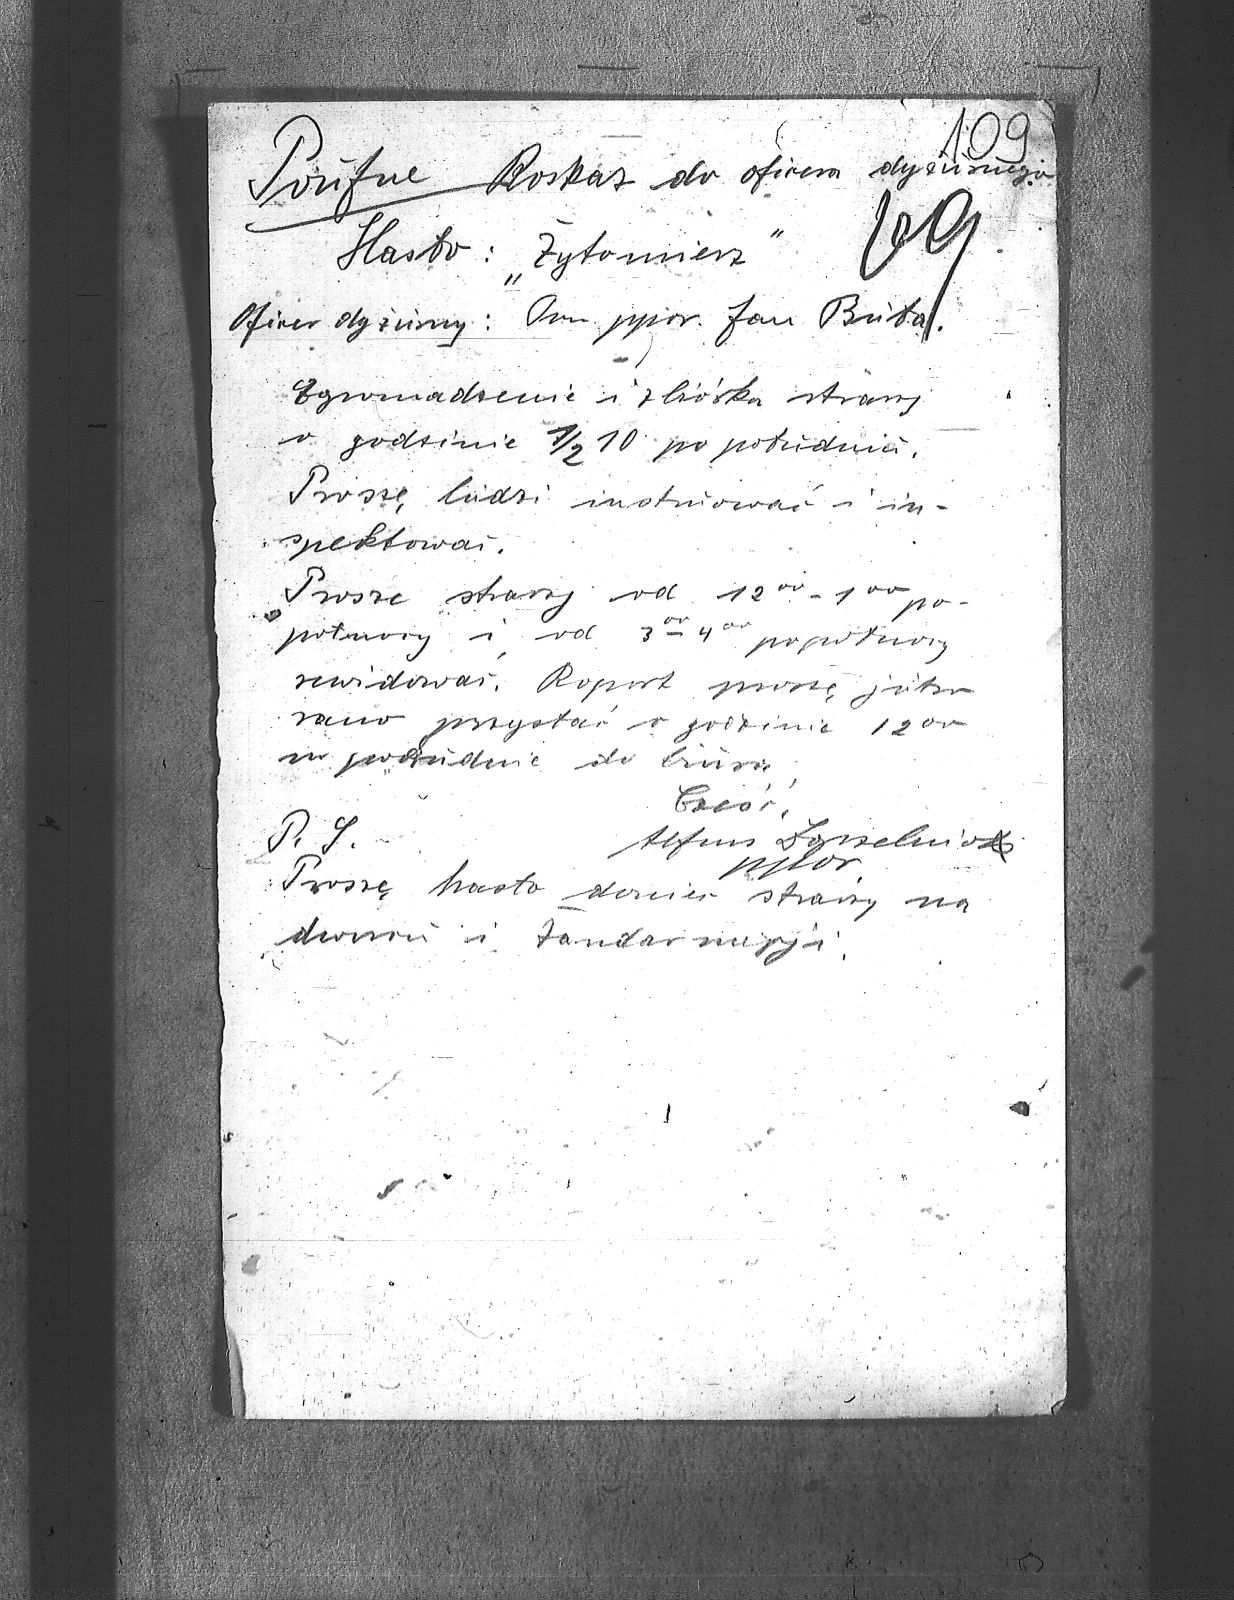 109
Poufne Roskaz do oficera dyżurnego
69
Hasło: „Żytomierz"
Oficer dyżurny: Pan ppor. Jan Buta.
Zgromadzenie i zbiórka straży
o godzinie 1/2 10 po południu.
Proszę ludzi instruować i in-
spektować.
Prosze straży od 12 00 - 1 00 po-
północy i od 3 00 - 4 00 popółnocy
rewidować. Raport proszę jutro
rano przysłać o godzinie 12 00
w południe do biura
Cześć,
Alfons
ppor.
P. S.
Proszę hasło donieś straży na
dworcu i żandarmerji.